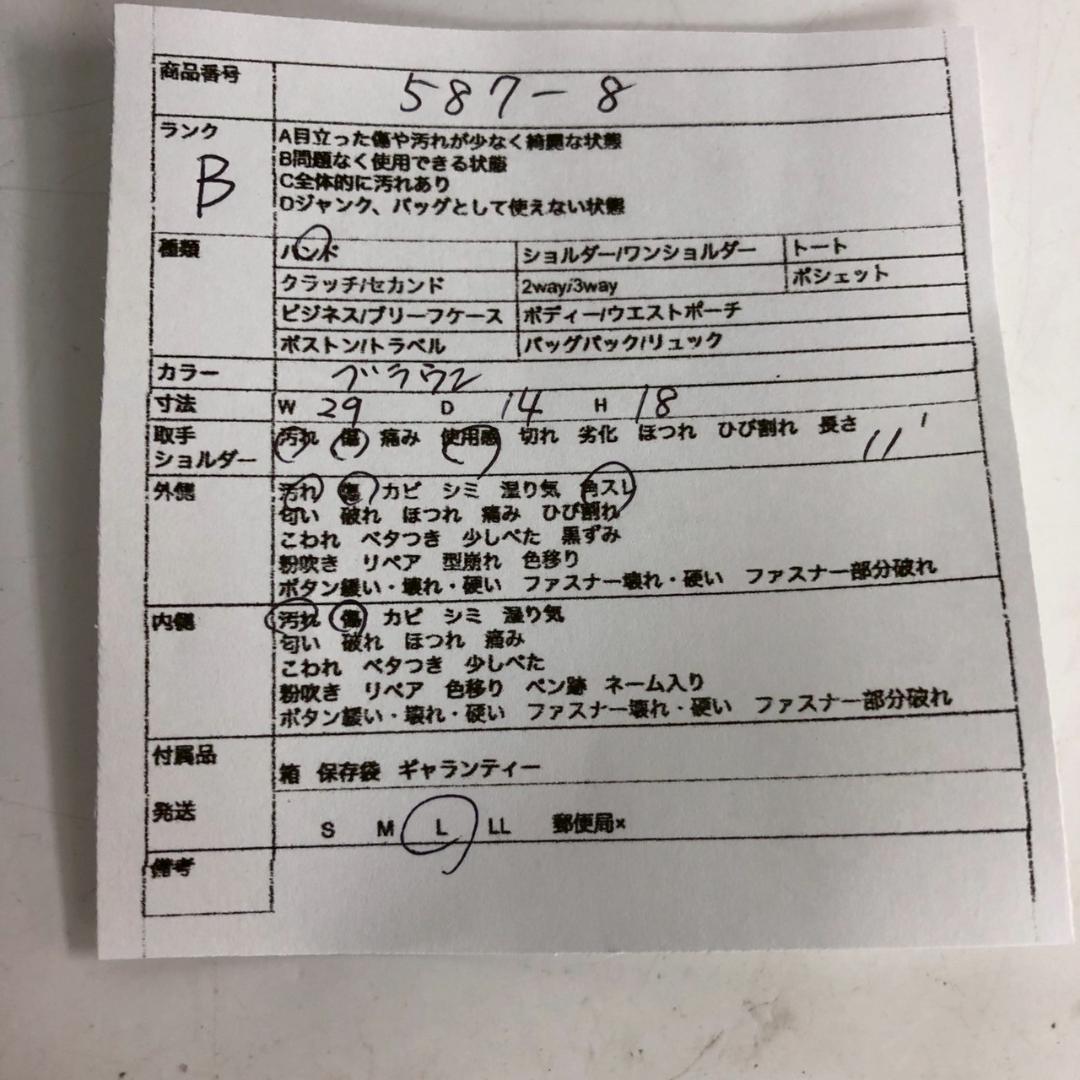 商品番号 587-8
ランク B
A目立った傷や汚れが少なく綺麗な状態
B問題なく使用できる状態
C全体的に汚れあり
Dジャンク、バッグとして使えない状態
種類 ハンド ショルダー/ワンショルダー トート
クラッチ/セカンド 2way/3way ポシェット
ビジネス/ブリーフケース ボディー/ウエストポーチ
ボストン/トラベル バッグパック/リュック
カラー ブラウン
寸法 W 29 D 14 H 18
取手 汚れ 傷 痛み 使用感 切れ 劣化 ほつれ ひび割れ 長さ 11
ショルダー
外側 汚れ 傷 カビ シミ 湿り気 角スレ
匂い 破れ ほつれ 痛み ひび割れ
こわれ ベタつき 少しべた 黒ずみ
粉吹き リペア 型崩れ 色移り
ボタン緩い・壊れ・硬い ファスナー壊れ・硬い ファスナー部分破れ
内側 汚れ 傷 カビ シミ 湿り気
匂い 破れ ほつれ 痛み
こわれ ベタつき 少しべた
粉吹き リペア 色移り ペン跡 ネーム入り
ボタン緩い・壊れ・硬い ファスナー壊れ・硬い ファスナー部分破れ
付属品 箱 保存袋 ギャランティー
発送 S M L LL 郵便局×
備考